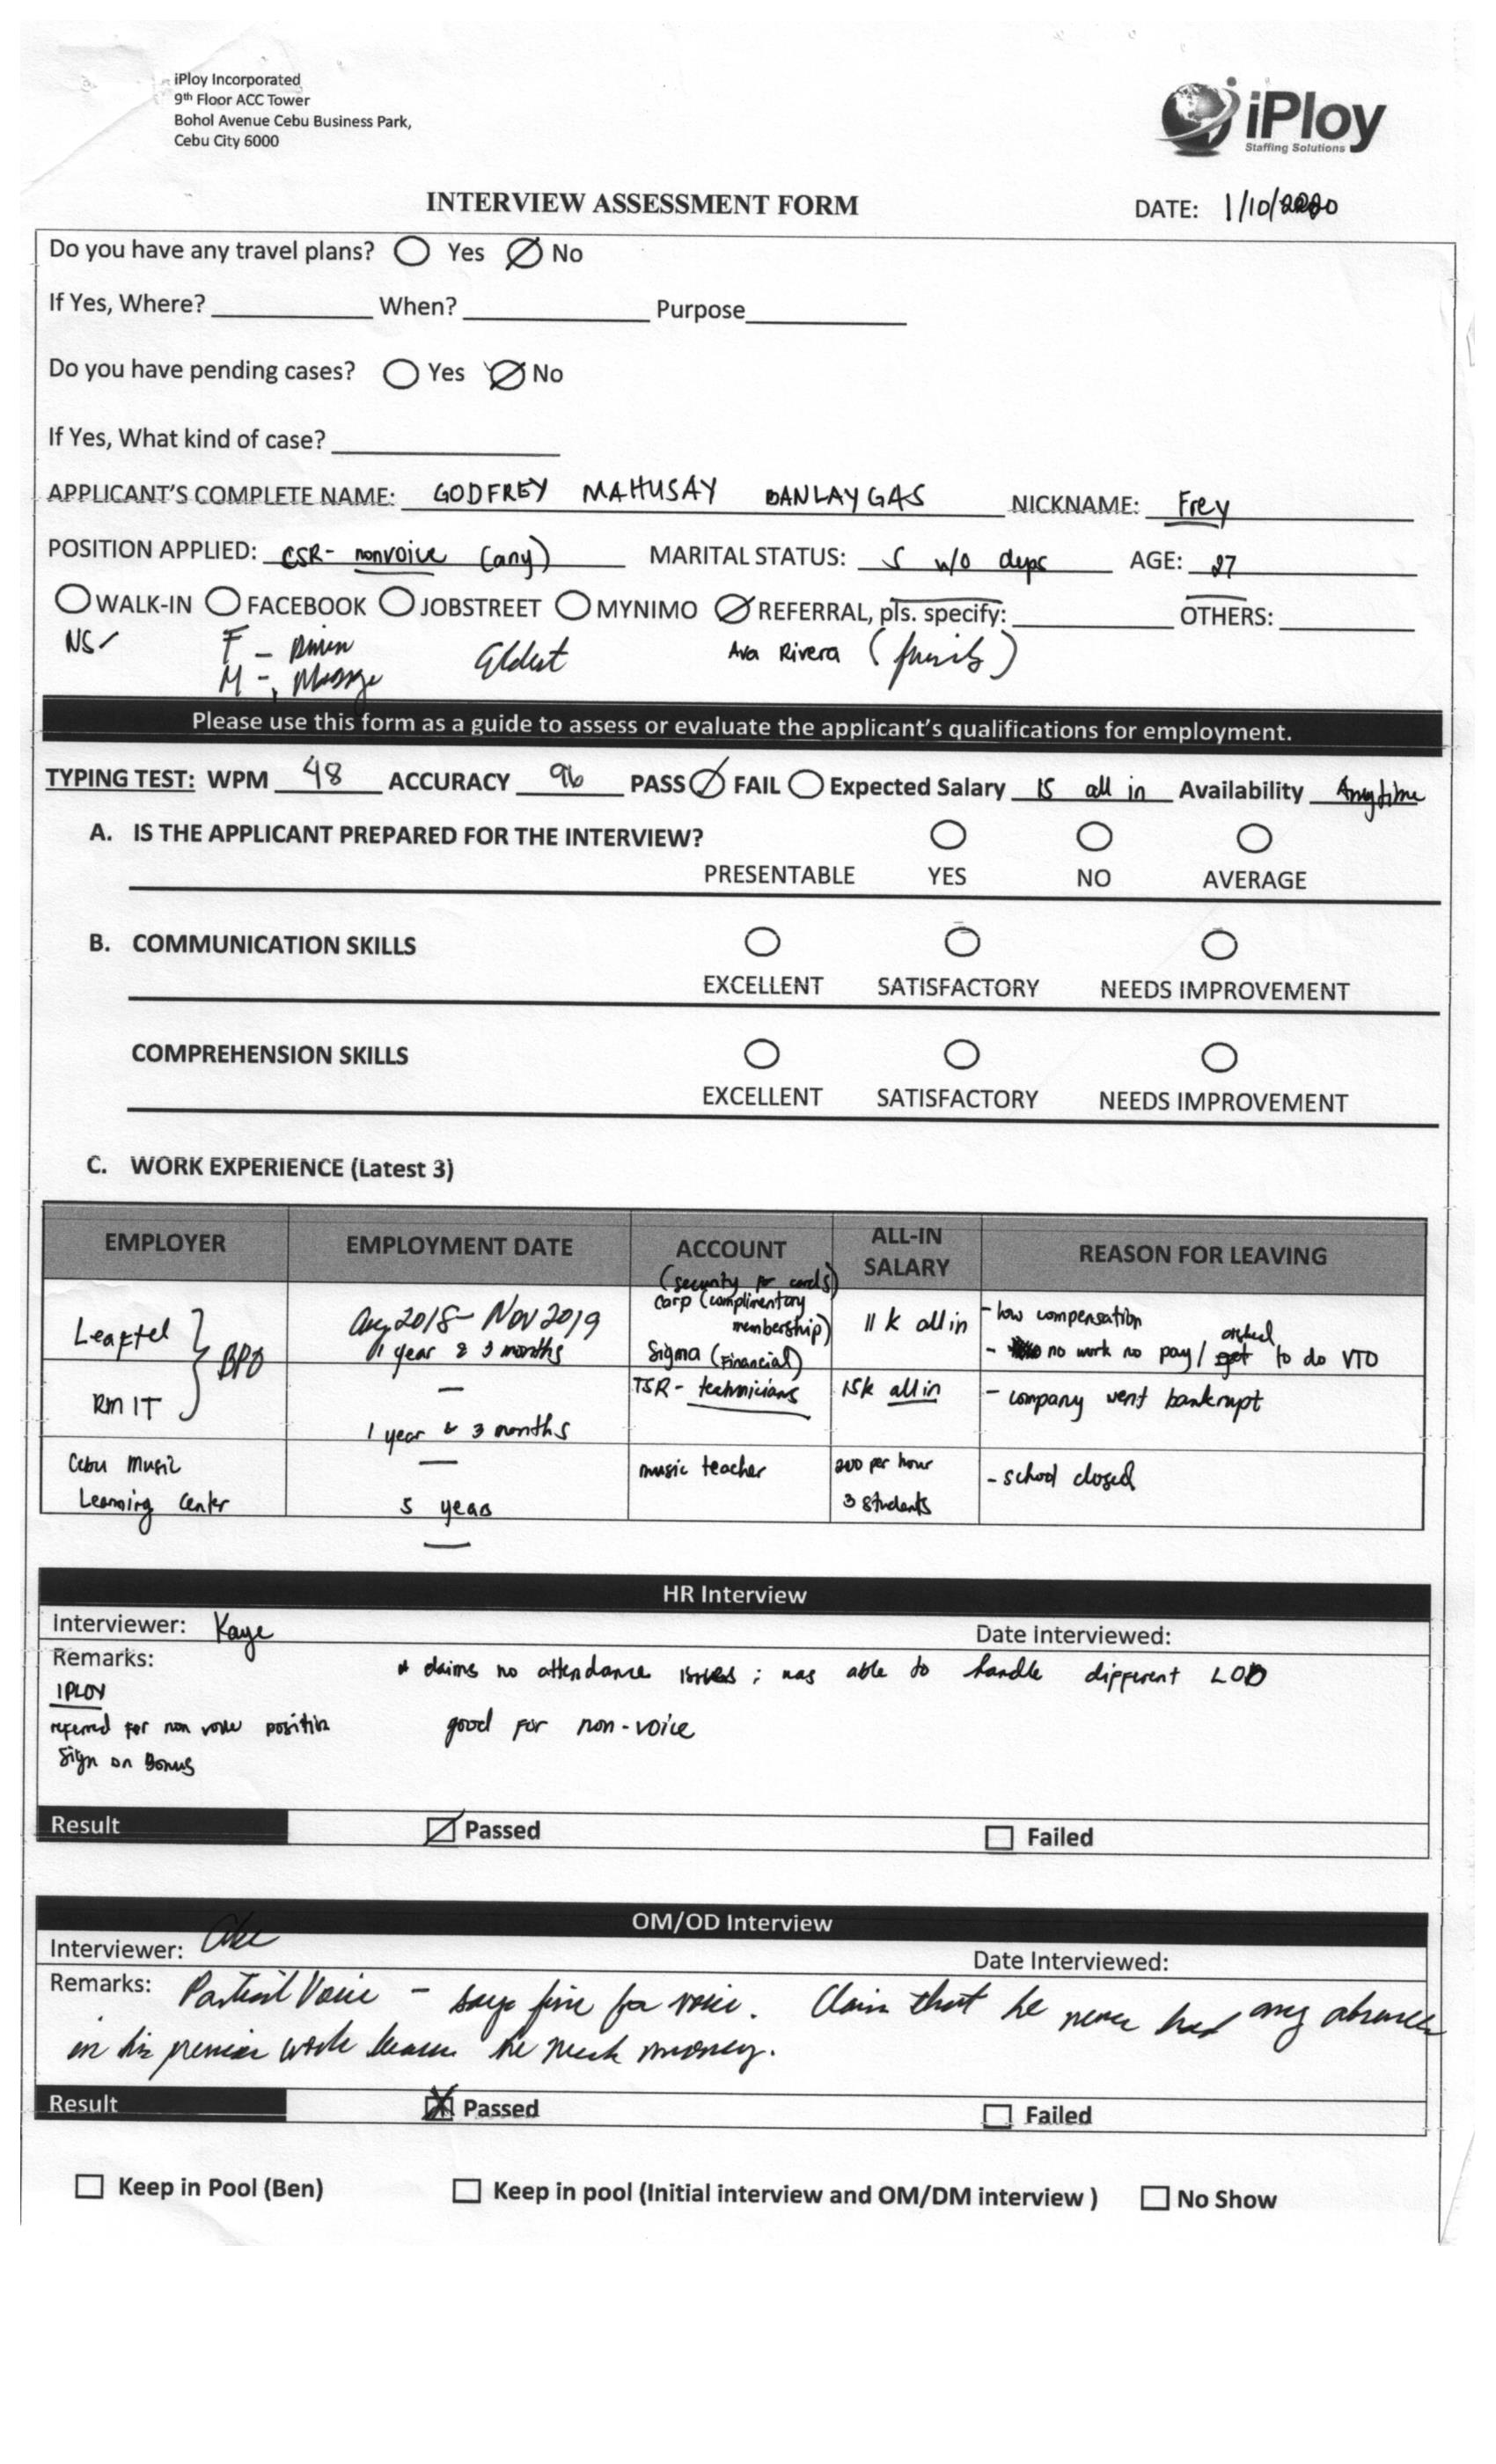 iPloy Incorporated
9th Floor ACC Tower
Bohol Avenue Cebu Business Park,
Cebu City 6000
iPloy
Staffing Solutions
INTERVIEW ASSESSMENT FORM
DATE: 1/10/2020
Do you have any travel plans? Yes No
If Yes, Where? When? Purpose
Do you have pending cases? Yes No
If Yes, What kind of case?
APPLICANT'S COMPLETE NAME: GODFREY MAHUSAY DANLAYGAS NICKNAME: Frey
POSITION APPLIED: CSR- nonvoice (any) MARITAL STATUS: S w/o deps AGE: 27
WALK-IN FACEBOOK JOBSTREET MYNIMO REFERRAL, pls. specify: OTHERS:
NS F - Eldest Ava Rivera
M -
Please use this form as a guide to assess or evaluate the applicant's qualifications for employment.
TYPING TEST: WPM 48 ACCURACY 96 PASS FAIL Expected Salary 15 all in Availability Anytime
A. IS THE APPLICANT PREPARED FOR THE INTERVIEW?
PRESENTABLE YES NO AVERAGE
B. COMMUNICATION SKILLS
EXCELLENT SATISFACTORY NEEDS IMPROVEMENT
COMPREHENSION SKILLS
EXCELLENT SATISFACTORY NEEDS IMPROVEMENT
C. WORK EXPERIENCE (Latest 3)
EMPLOYER EMPLOYMENT DATE ACCOUNT ALL-IN SALARY REASON FOR LEAVING
(security for cards)
Leaftel BPO Aug 2018 - Nov 2019 Carp (complimentary membership) 11 k all in - low compensation
1 year & 3 months Sigma (Financial) - no work no pay/ asked to do VTO
RM IT 1 year & 3 months TSR - technicians 15k all in - company went bankrupt
Cebu Music Learning Center 5 years music teacher 200 per hour 3 students - school closed
HR Interview
Interviewer: Kaye Date interviewed:
Remarks: * claims no attendance issues ; was able to handle different LOB
IPLOY
referred for non voice position good for non-voice
Sign on Bonus
Result Passed Failed
OM/OD Interview
Interviewer: Date Interviewed:
Remarks: Partial Voice - says fine for voice. Claim that he never had any absences
in his work he money.
Result Passed Failed
Keep in Pool (Ben) Keep in pool (Initial interview and OM/DM interview ) No Show